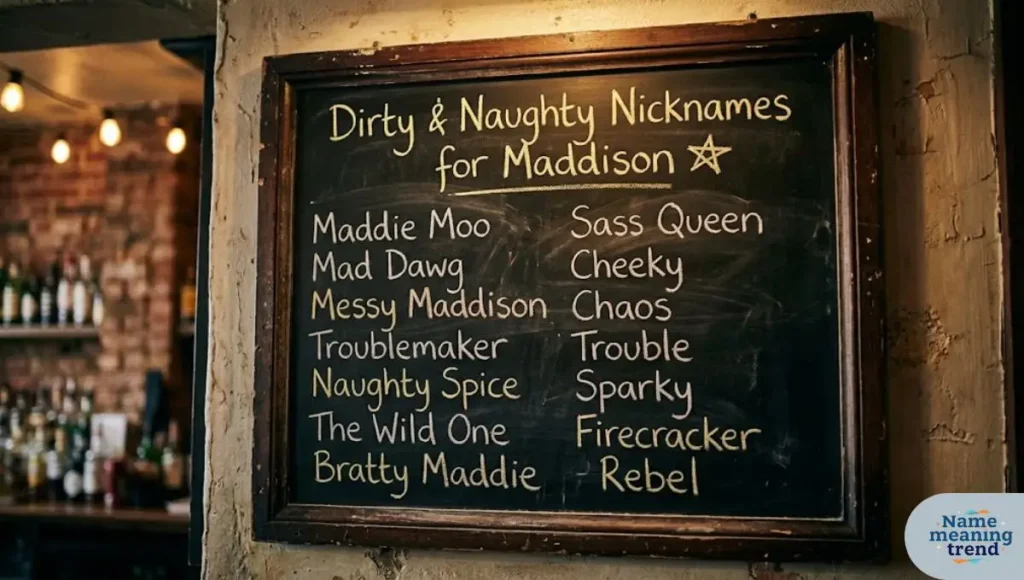 Dirty & Naughty Nicknames
for Maddison
Maddie Moo
Mad Dawg
Messy Maddison
Troublemaker
Naughty Spice
The Wild One
Bratty Maddie
Sass Queen
Cheeky
Chaos
Trouble
Sparky
Firecracker
Rebel
Name
meaning
trend